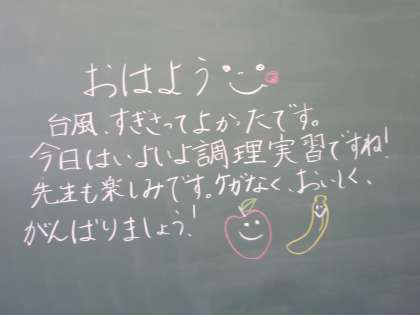 おはよう
台風、すぎさってよかったです。
今日はいよいよ調理実習ですね!
先生も楽しみです。ケガなく、おいしく、
がんばりましょう!